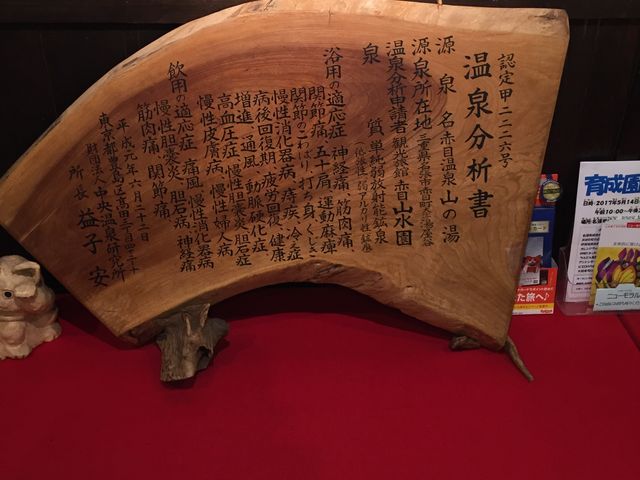 認定甲二一二六号
温泉分析書
源泉名 赤目温泉 山の湯
源泉所在地 三重県名張市赤目町
温泉分析申請者 観光旅館 赤目 山水園
泉質 単純弱放射能鉱泉
浴用の適応症 神経痛 筋肉痛
関節痛 五十肩 運動麻痺
関節のこわばり 打ち身 くじき
慢性消化器病 痔疾 冷え症
病後回復期 疲労回復 健康
増進 通風 動脈硬化症
高血圧症 慢性胆嚢炎 胆石症
慢性皮膚病 慢性婦人病
飲用の適応症 痛風 慢性消化器病
慢性胆嚢炎 胆石病 神経痛
筋肉痛 関節痛
平成元年六月二十二日
東京都豊島区高田
財団法人 中央温泉研究所
所長 益子 安
育成園
日時:2017年5月14日
午前10:00〜午後
ニューモラル
た旅へ♪